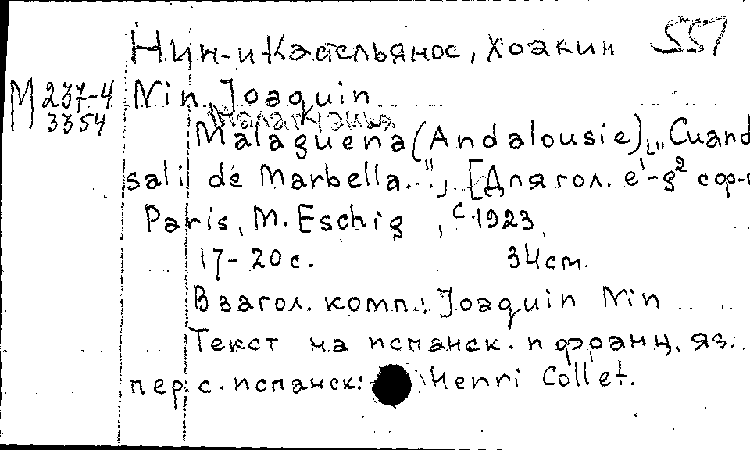 Нин-и-Кастельянос, Хоакин 551
М 237-4 Nin Joaquin
3354 Малагуэнья
Malaguena (Andalousie) „Cuand
sali de Marbella..." [Для гол. e¹-g² сор-
Paris, M. Eschig, c 1923.
17-20 с. 34 cm.
В загол. комп.: Joaquin Nin
Текст на испанск. и франц. яз.
пер. с. испанск.: Henri Collet.